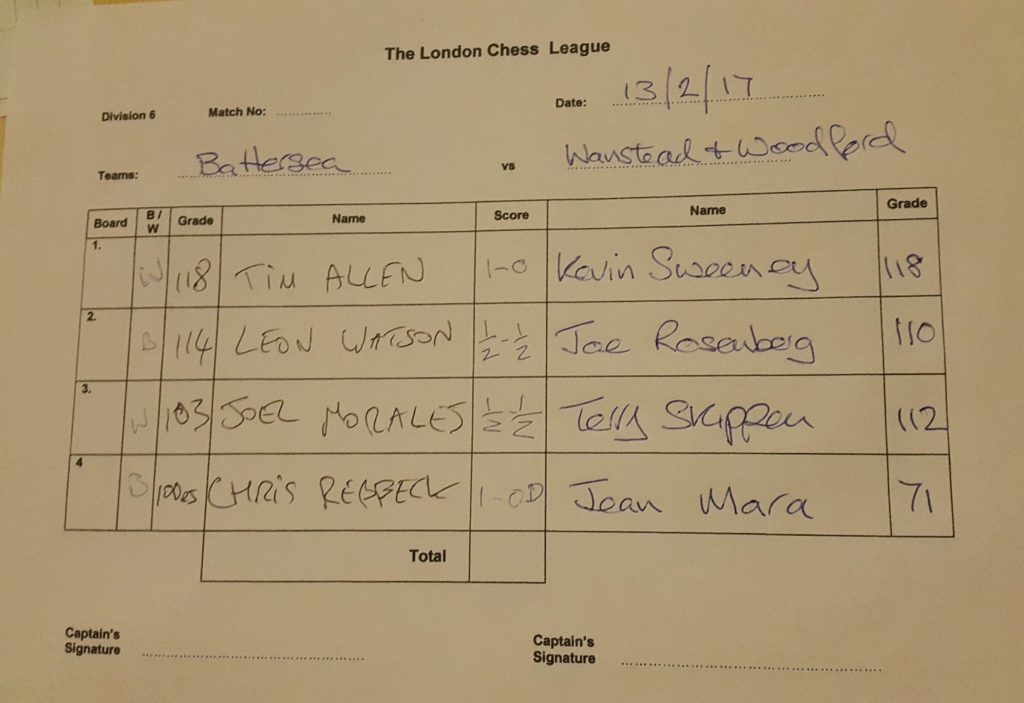 The London Chess League
Division 6 Match No: ............ Date: 13/2/17
Teams: Battersea vs Wanstead & Woodford
Board B / W Grade Name Score Name Grade
1. W 118 TIM ALLEN 1-0 Kevin Sweeney 118
2. B 114 LEON WATSON 1/2-1/2 Joe Rosenberg 110
3. W 103 JOEL MORALES 1/2-1/2 Terry Skippen 112
4 B 100es CHRIS REBBECK 1-0D Jean Mara 71
Total
Captain's Signature ............ Captain's Signature ............